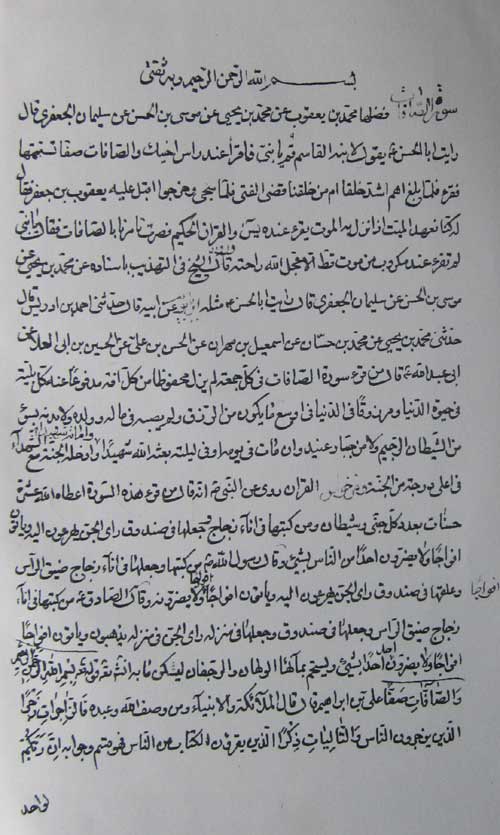 بسم الله الرحمن الرحيم وبه ثقتي
سورة الصافات فضلها محمد بن يعقوب عن محمد بن يحيى عن موسى بن الحسن عن سليمان الجعفري قال
رايت ابا الحسن ع يقول لابنه القاسم قم يا بني فاقرأ عند راس اخيك والصافات صفا تستتمها
فقرء فلما بلغ اهم اشد خلقا ام من خلقنا قضى الفتى فلما سجي وخرجوا اقبل عليه يعقوب بن جعفر فقال
له كنا نعهد الميت اذا نزل به الموت يقرء عنده يس والقران الحكيم فصرت تامرنا بالصافات فقال يا بني
لم تقرء عند مكروب من موت قط الا عجل الله راحته ورواه الشيخ في التهذيب باسناده عن محمد بن يحيى عن
موسى بن الحسن عن سليمان الجعفري قال رايت ابا الحسن ع مثله ابن بابويه عن ابيه قال حدثني احمد بن ادريس قال
حدثني محمد بن يحيى عن محمد بن حسان عن اسمعيل بن مهران عن الحسن بن علي عن الحسين بن ابي العلا عن
ابي عبد الله ع قال من قرء سورة الصافات في كل جمعة لم يزل محفوظا من كل افة مدفوعا عنه كل بلية
في حيوة الدنيا مرزوقا في الدنيا في اوسع ما يكون من الرزق ولم يصبه في ماله وولده ولا بدنه بسوء
من الشيطان الرجيم ولا من جبار عنيد وان مات في يومه او في ليلته بعثه الله شهيدا واماته شهيدا وادخله الجنة مع الشهدآء
في اعلى درجة من الجنة ومن خواص القران روي عن النبي ص انه قال من قرء هذه السورة اعطاه الله عشر
حسنات بعدد كل جني وشيطان ومن كتبها في انآء زجاج وجعلها في صندوق راى الجن يهرعون اليه وياتون
افواجا ولا يضرون احدا من الناس بشيء وقال رسول الله ص من كتبها وجعلها في انآء زجاج ضيق الراس
وعلقها في صندوق راى الجن يهرعون اليه وياتون افواجا افواجا ولا يضرونه وقال الصادق ع من كتبها في انآء
زجاج ضيق الراس وجعلها في صندوق وجعلها في منزله راى الجن في منزله يذهبون وياتون افواجا
افواجا ولا يضرون احدا بشيء ويستحم بمآئها الولهان والرجفان ليسكن ما به انشآء الله قوله تعالى بسم الله الرحمن الرحيم
والصافات صفا علي بن ابراهيم قال قال الملآئكة والانبيآء ومن وصف الله وعبده فالزاجرات زجرا
الذين يزجرون الناس والتاليات ذكرا الذين يقرؤن الكتاب من الناس فهو قسم وجوابه ان ربكم
لواحد